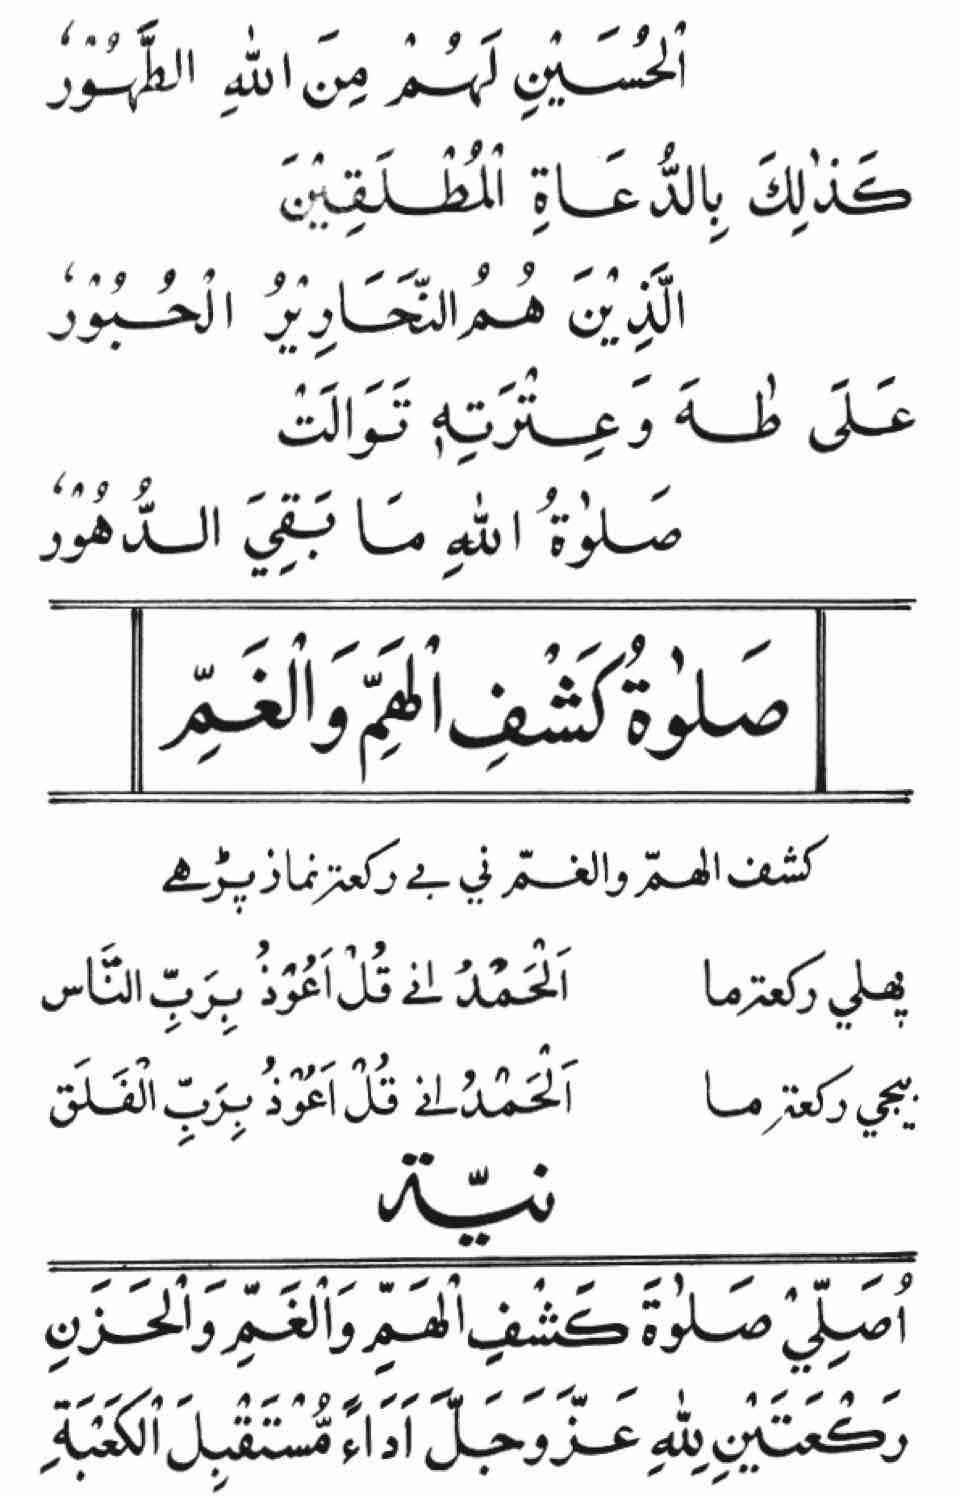 الْحُسَيْنِ لَهُمْ مِنَ اللهِ الطَّهُوْرُ
كَذٰلِكَ بِالدُّعَاةِ الْمُطْلَقِيْنَ
الَّذِيْنَ هُمُ النَّحَارِيْرُ الْحُبُوْرُ
عَلَى طٰهَ وَعِتْرَتِهٖ تَوَالَتْ
صَلٰوةُ اللهِ مَا بَقِيَ الدُّهُوْرُ
صَلٰوةُ كَشْفِ الْهَمِّ وَالْغَمِّ
كشف الهمّ والغمّ ني بے ركعة نماز پڑهے
پهلي ركعة ما اَلْحَمْدُ انے قُلْ اَعُوْذُ بِرَبِّ النَّاس
بيجي ركعة ما اَلْحَمْدُ انے قُلْ اَعُوْذُ بِرَبِّ الْفَلَق
نيّة
اُصَلِّيْ صَلٰوةَ كَشْفِ الْهَمِّ وَالْغَمِّ وَالْحَزَنِ
رَكْعَتَيْنِ لِلّٰهِ عَزَّ وَجَلَّ اَدَاءً مُّسْتَقْبِلَ الْكَعْبَةِ